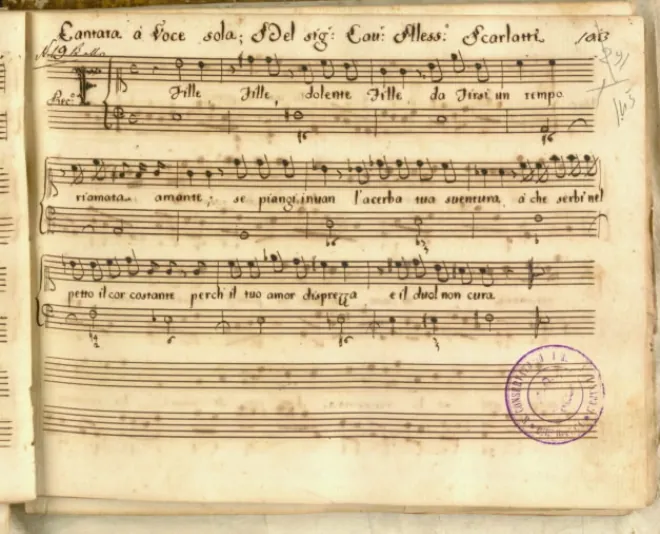 Cantata á Voce sola; Del sig.r Cau.r Aless.o Scarlatti
Rec.o
Fille Fille, dolente Fille da Tirsi un tempo
riamata amante; se piangi inuan l'acerba tua suentura, á che serbi nel
petto il cor costante perch'il tuo amor disprezza e il duol non cura